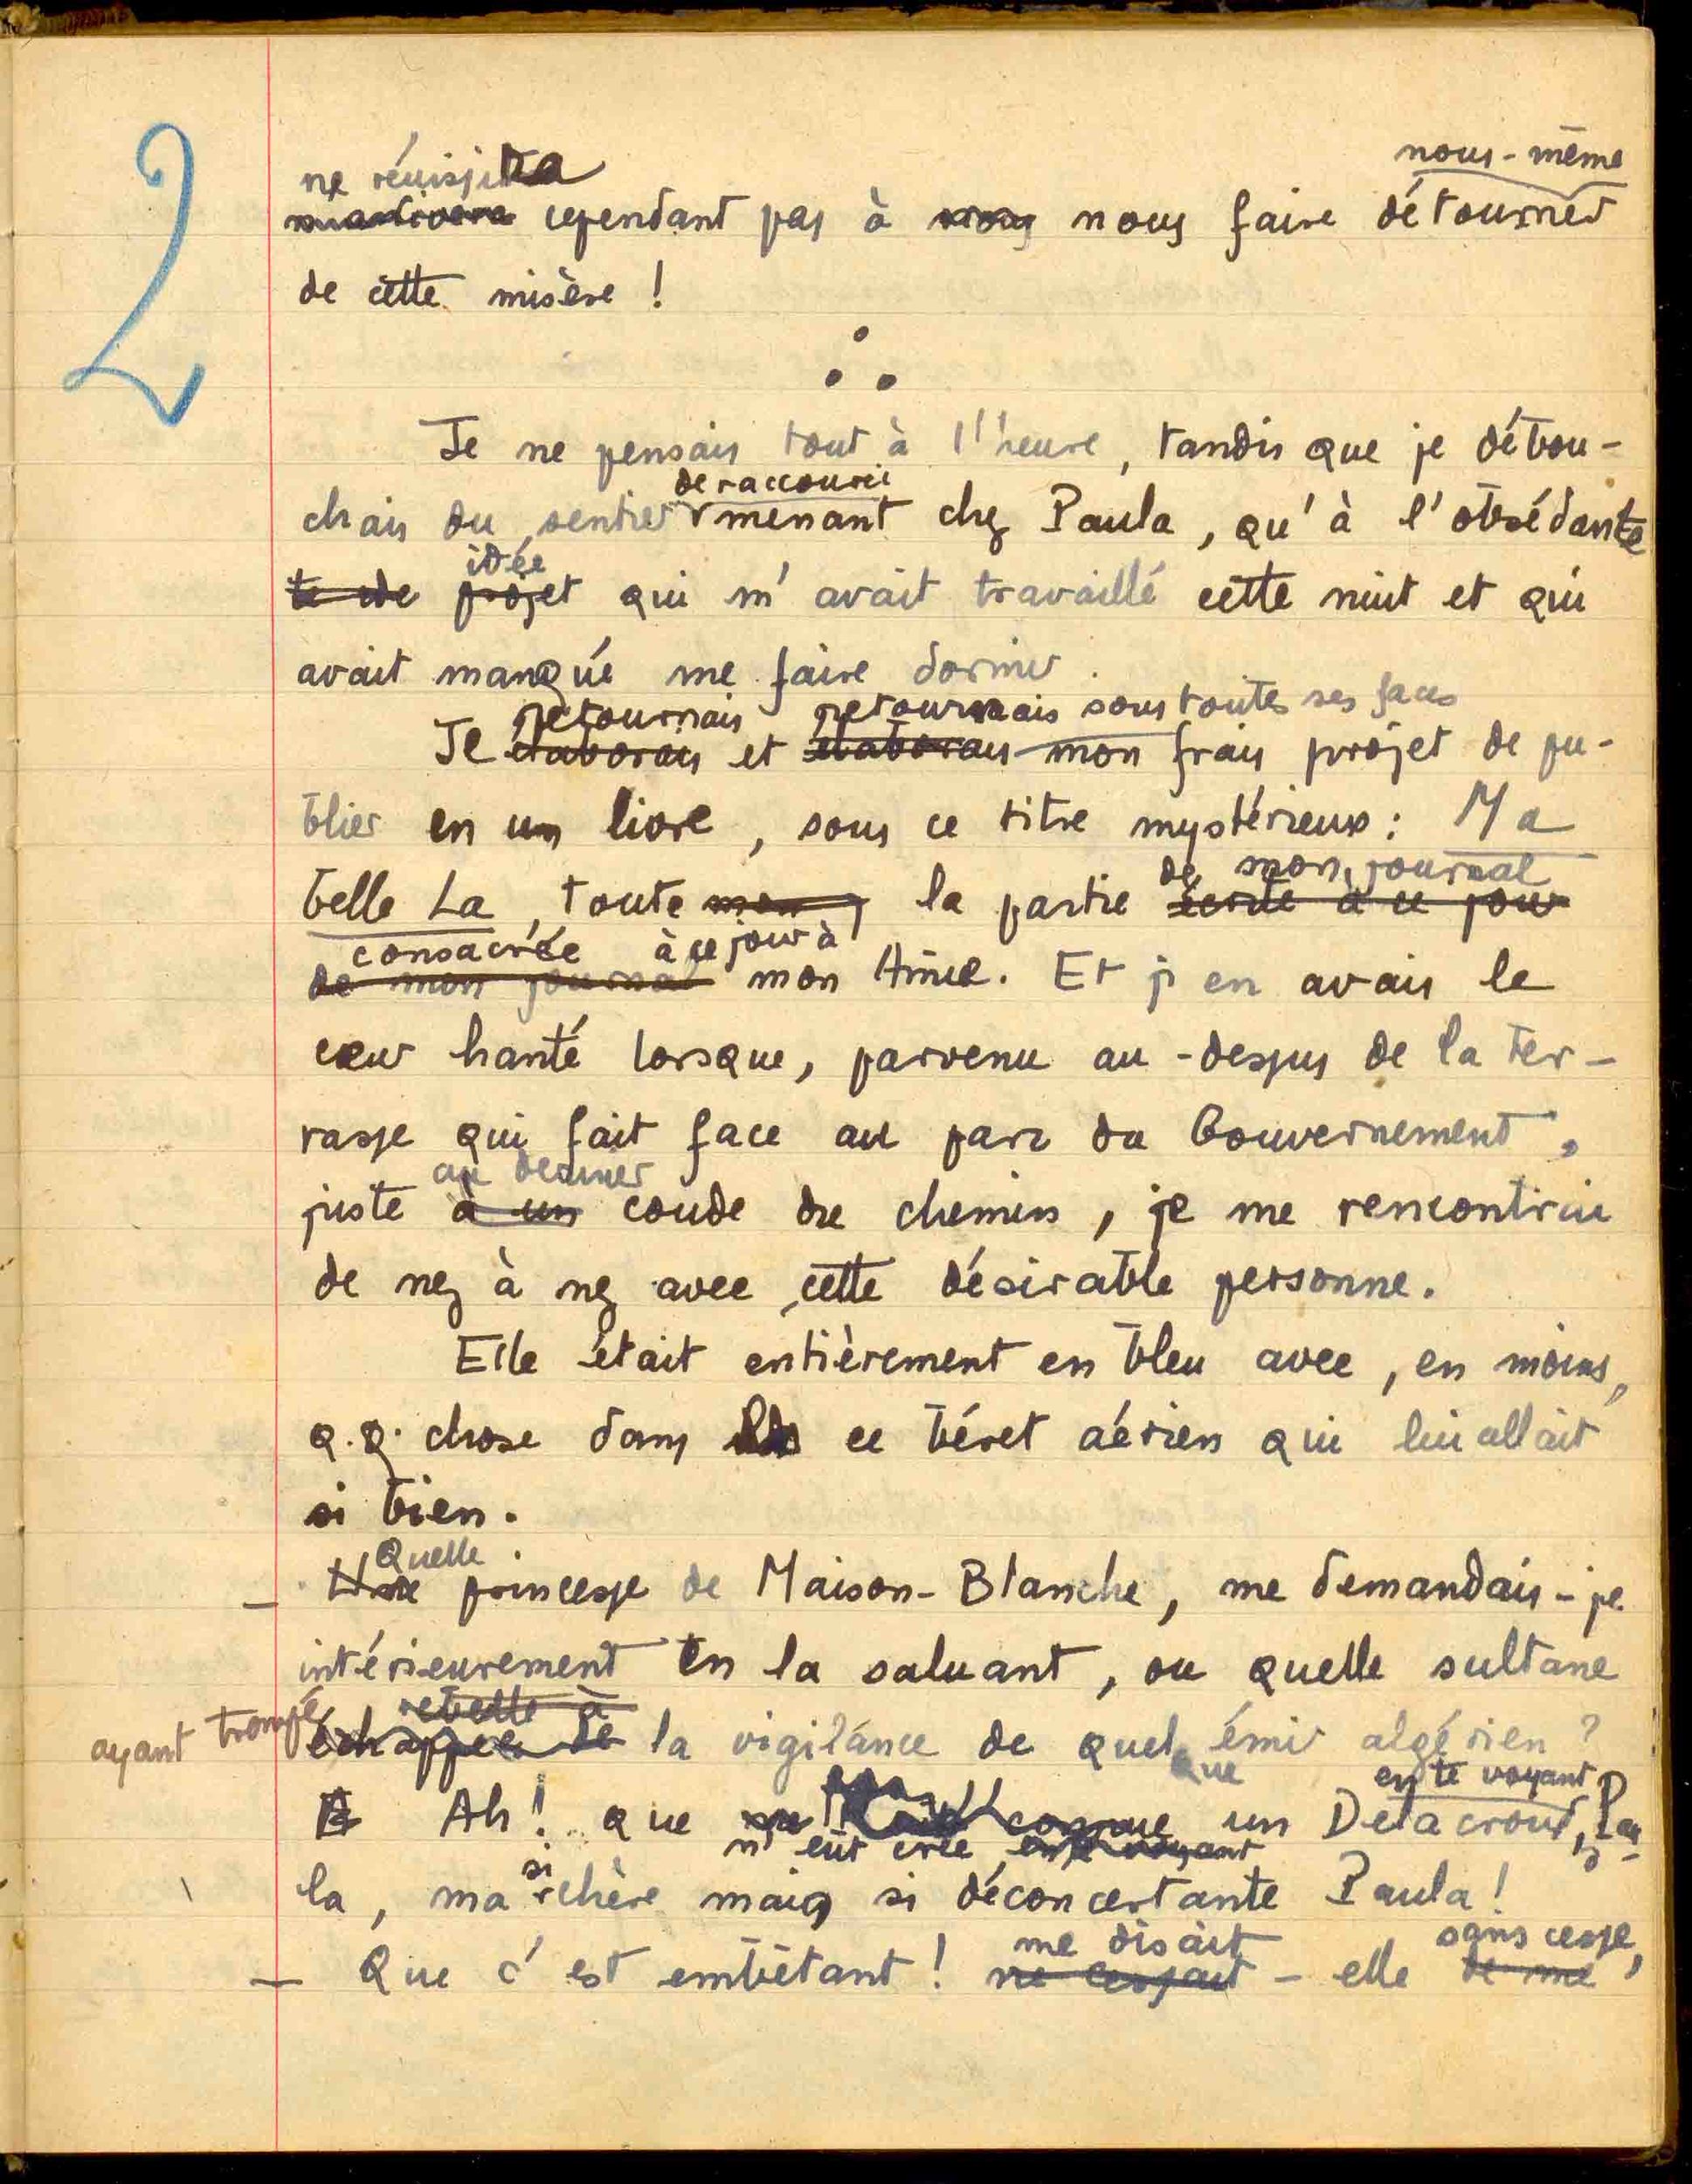 2
nous-même
ne réussira
cependant pas à nous faire détourner
de cette misère !
Je ne pensais tout à l'heure, tandis que je débou-
de raccourci
chais du sentier menant chez Paula, qu'à l'obsédante
idée
te de projet qui m'avait travaillé cette nuit et qui
avait manqué me faire dormir.
retournais retournais sous toutes ses faces
Je élaborais et élaborais mon frais projet de pu-
blier en un livre, sous ce titre mystérieux : Ma
de mon journal
belle La, toute mon la partie écrite à ce jour
consacrée à ce jour à
de mon journal mon Amie. Et j'en avais le
cœur hanté lorsque, parvenu au-dessus de la ter-
rasse qui fait face au parc du Gouvernement,
au dernier
juste à un coude de chemin, je me rencontrai
de nez à nez avec cette désirable personne.
Elle était entièrement en bleu avec, en moins,
q.q. chose dans ce béret aérien qui lui allait
si bien.
Quelle
– Une princesse de Maison-Blanche, me demandais-je
intérieurement en la saluant, ou quelle sultane
rebelle à
ayant trompé
échappée de la vigilance de quelque émir algérien ?
en te voyant
Ah ! que comme un Delacroix, Pau-
n'eût créé en te voyant
si
la, ma chère mais si déconcertante Paula !
me disait sans cesse,
– Que c'est embêtant ! ne cessait - elle de me